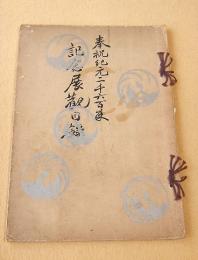 奉祝紀元二千六百年
記念展觀目録